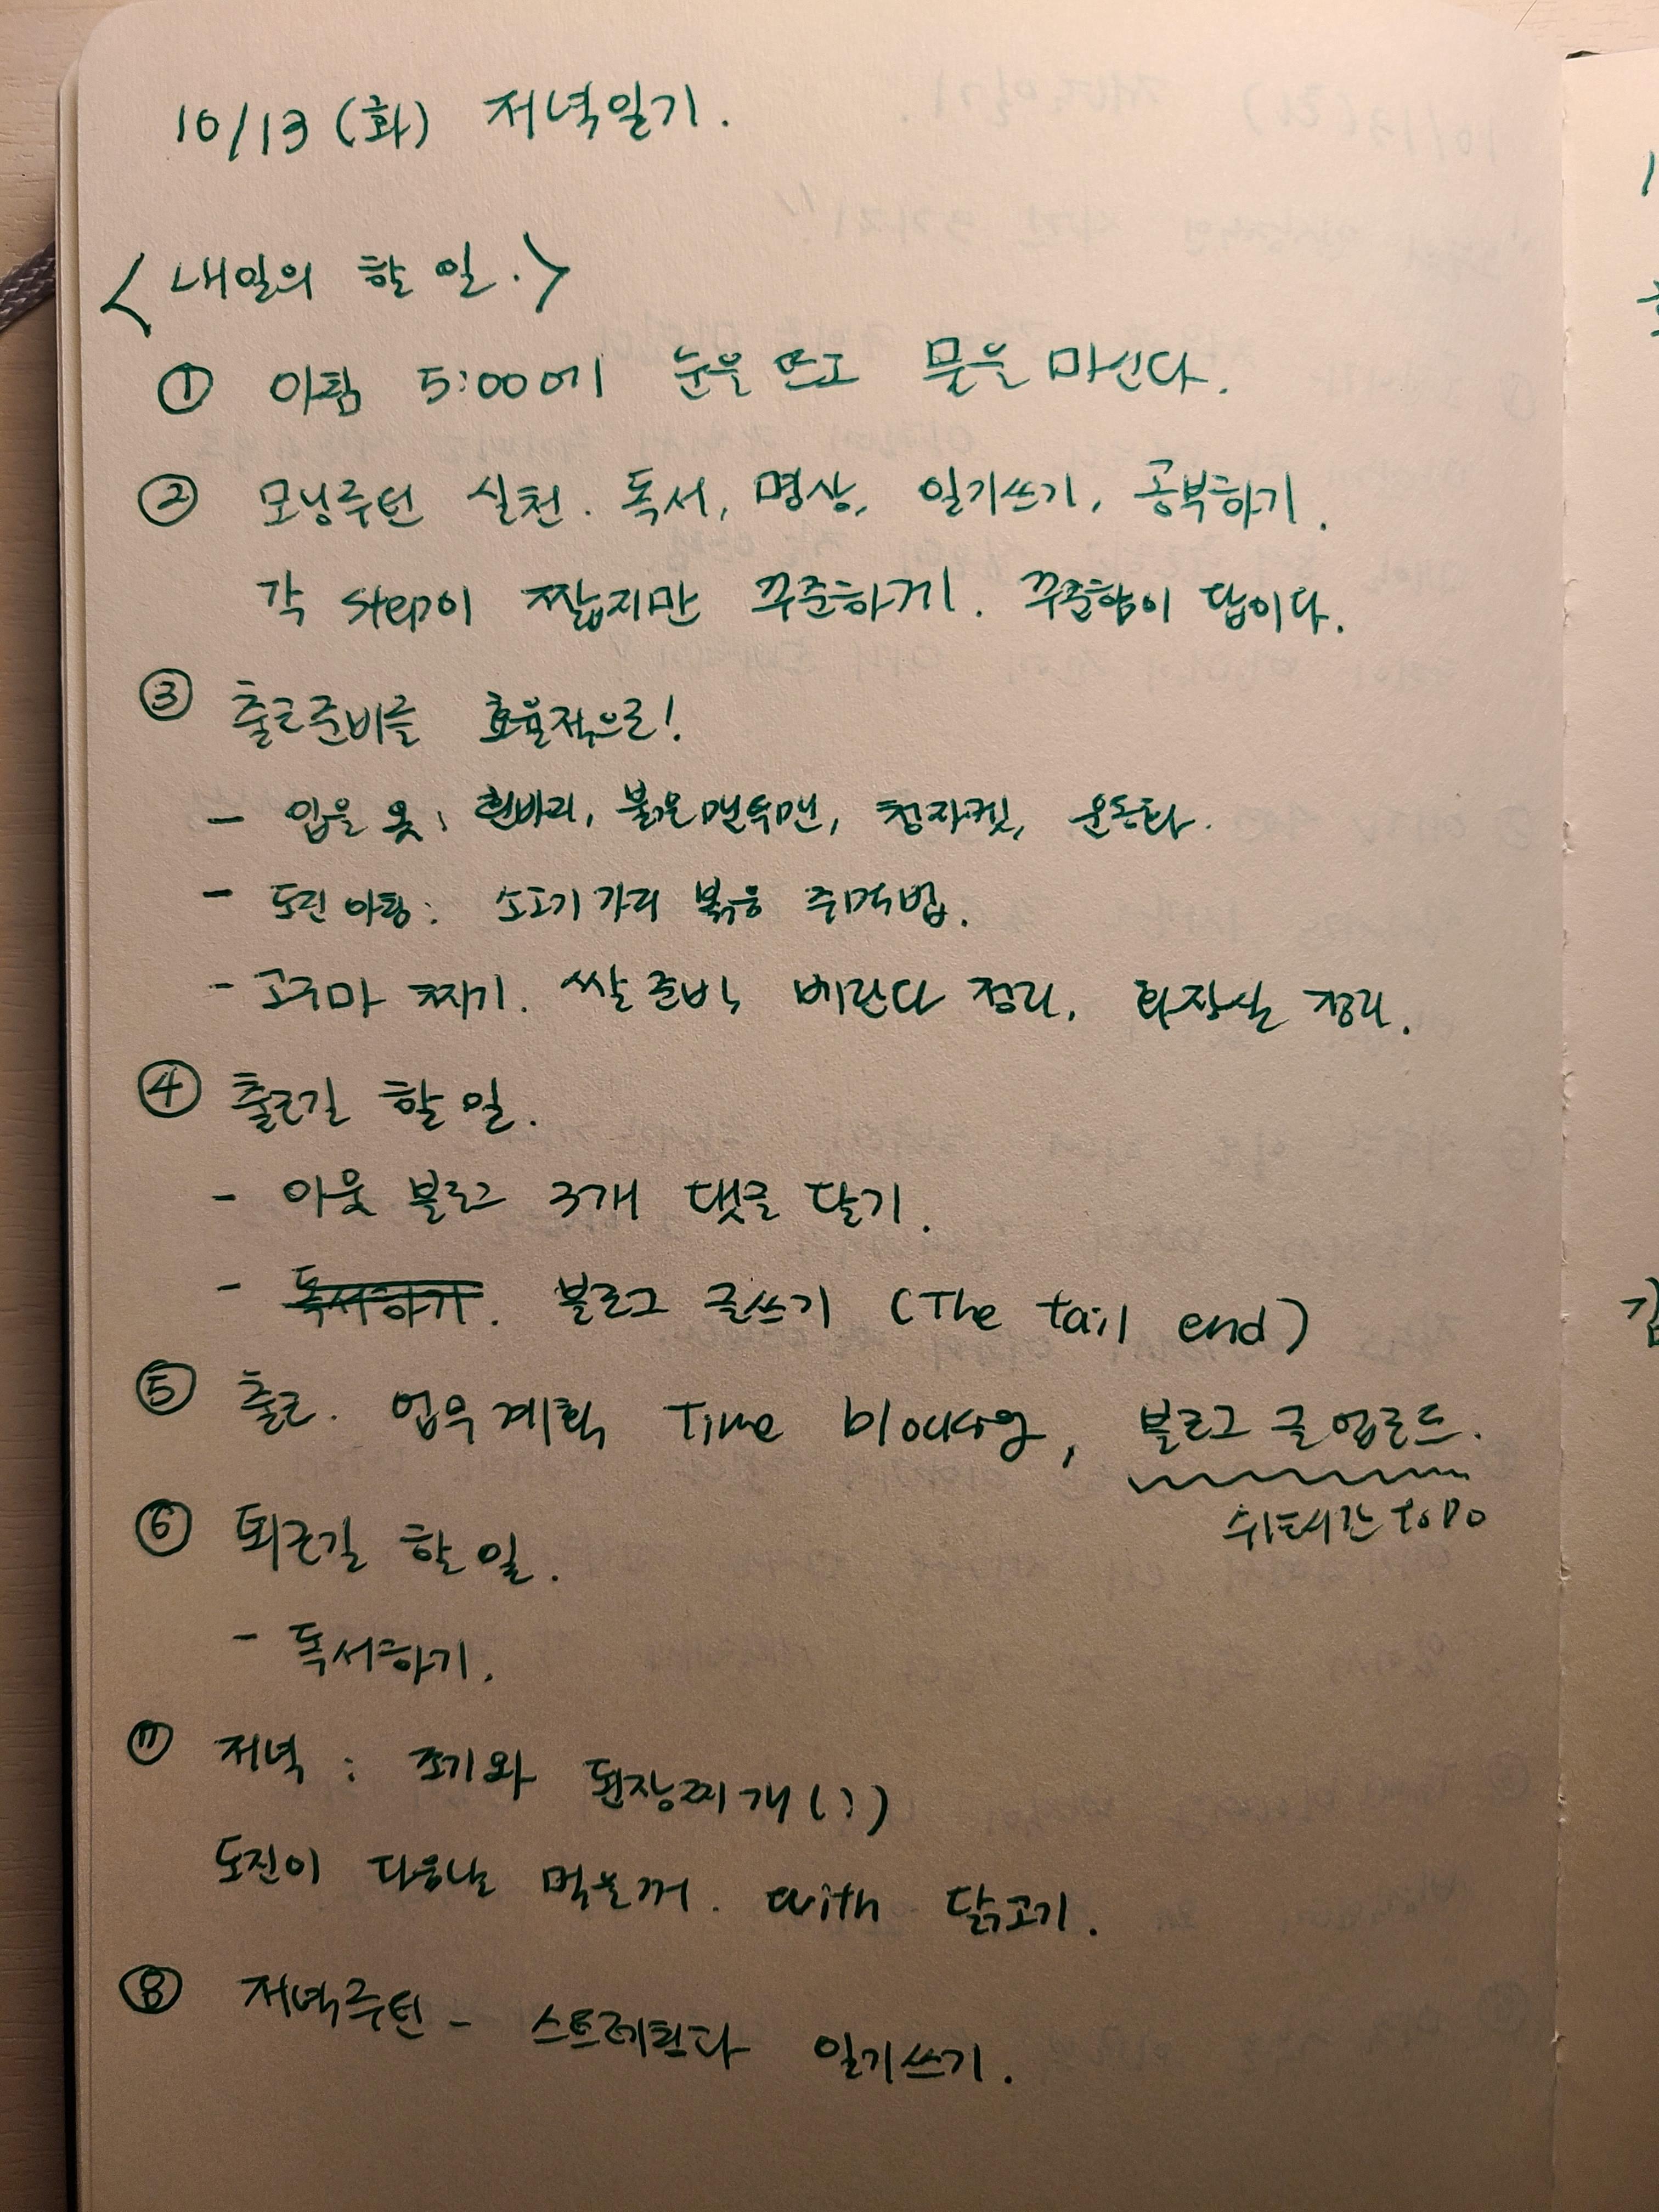 10/13 (화) 저녁일기.
<내일의 할 일.>
① 아침 5:00에 눈을 뜨고 물을 마신다.
② 모닝루틴 실천. 독서, 명상, 일기쓰기, 공부하기.
각 step이 짧지만 꾸준하게. 꾸준함이 답이다.
③ 출근준비를 효율적으로!
- 입을 옷: 흰바지, 붉은맨투맨, 청자켓, 운동화.
- 도진아침: 소고기 가지 볶음 주먹밥.
- 고구마 찌기. 쌀 준비, 베란다 정리, 화장실 정리.
④ 출근길 할 일.
- 이웃 블로그 3개 댓글 달기.
- 독서하기. 블로그 글쓰기 (The tail end)
⑤ 출근. 업무계획 Time blocking, 블로그 글 업로드.
쉬는시간 TODO
⑥ 퇴근길 할 일.
- 독서하기.
⑦ 저녁 : 조기와 된장찌개(?)
도진이 다음날 먹을꺼. with 닭고기.
⑧ 저녁루틴 - 스트레칭다 일기쓰기.